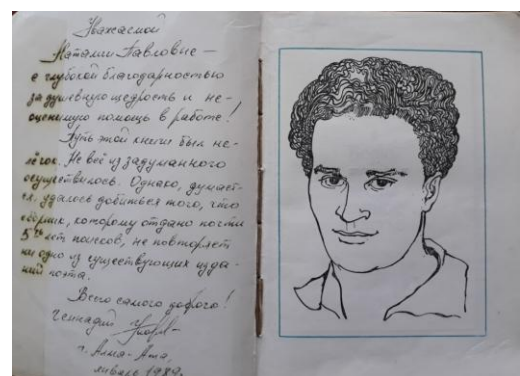 Уважаемой
Наталии Павловне —
с глубокой благодарностью
за душевную щедрость и не-
оценимую помощь в работе!
Путь этой книги был не-
лёгок. Не всё из задуманного
осуществилось. Однако, думает-
ся, удалось добиться того, что
сборник, которому отдано почти
5 лет поисков, не повторяет
ни одно из существующих изда-
ний поэта.
Всего самого доброго!
Геннадий
г. Алма-Ата,
январь 1989.